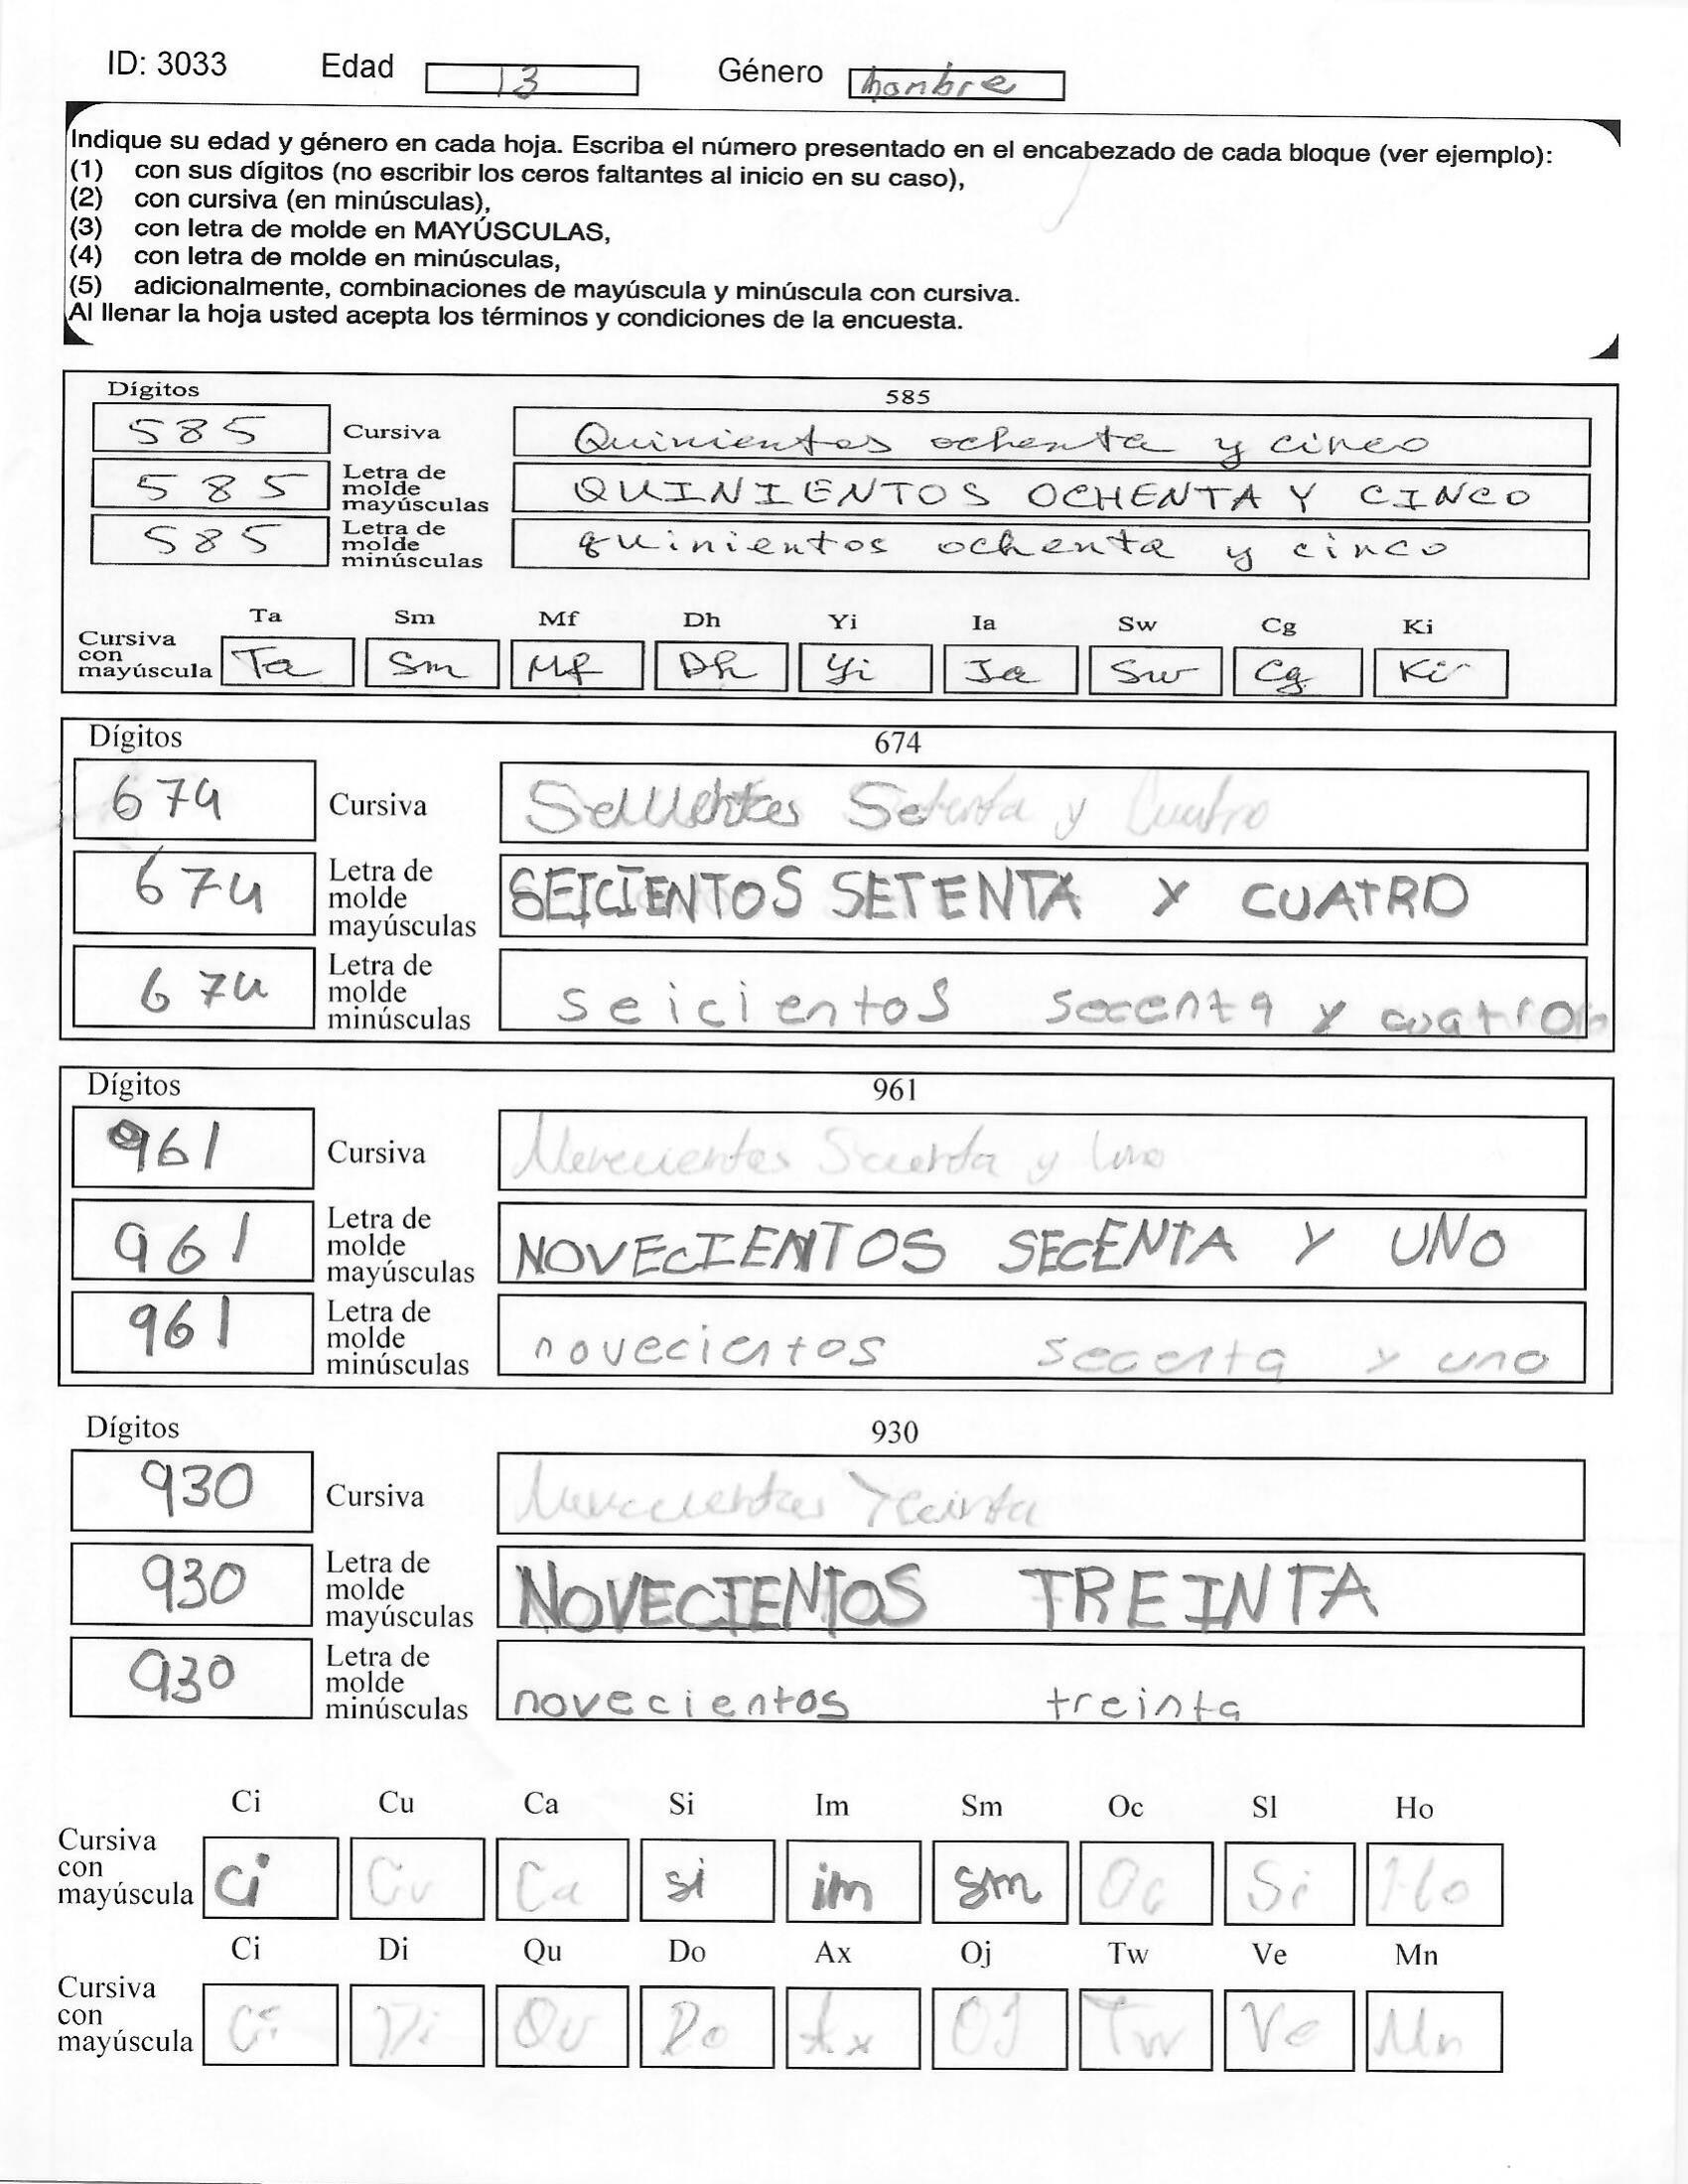 ID: 3033 Edad 13 Género hombre
Indique su edad y género en cada hoja. Escriba el número presentado en el encabezado de cada bloque (ver ejemplo):
(1) con sus dígitos (no escribir los ceros faltantes al inicio en su caso),
(2) con cursiva (en minúsculas),
(3) con letra de molde en MAYÚSCULAS,
(4) con letra de molde en minúsculas,
(5) adicionalmente, combinaciones de mayúscula y minúscula con cursiva.
Al llenar la hoja usted acepta los términos y condiciones de la encuesta.
Dígitos 585
585 Cursiva Quinientos ochenta y cinco
585 Letra de molde mayúsculas QUINIENTOS OCHENTA Y CINCO
585 Letra de molde minúsculas quinientos ochenta y cinco
Ta Sm Mf Dh Yi Ia Sw Cg Ki
Cursiva con mayúscula Ta Sm Mf Dh Yi Ia Sw Cg Ki
Dígitos 674
674 Cursiva Setenta y Cuatro
674 Letra de molde mayúsculas SEICIENTOS SETENTA Y CUATRO
674 Letra de molde minúsculas seicientos secenta y cuatro
Dígitos 961
961 Cursiva y Uno
961 Letra de molde mayúsculas NOVECIENTOS SECENTA Y UNO
961 Letra de molde minúsculas novecientos secenta y uno
Dígitos 930
930 Cursiva Treinta
930 Letra de molde mayúsculas NOVECIENTOS TREINTA
930 Letra de molde minúsculas novecientos treinta
Ci Cu Ca Si Im Sm Oc Sl Ho
Cursiva con mayúscula Ci Cu Ca si im sm Oc Si Ho
Ci Di Qu Do Ax Oj Tw Ve Mn
Cursiva con mayúscula Ci Di Qu Do Ax OJ Tw Ve Mn